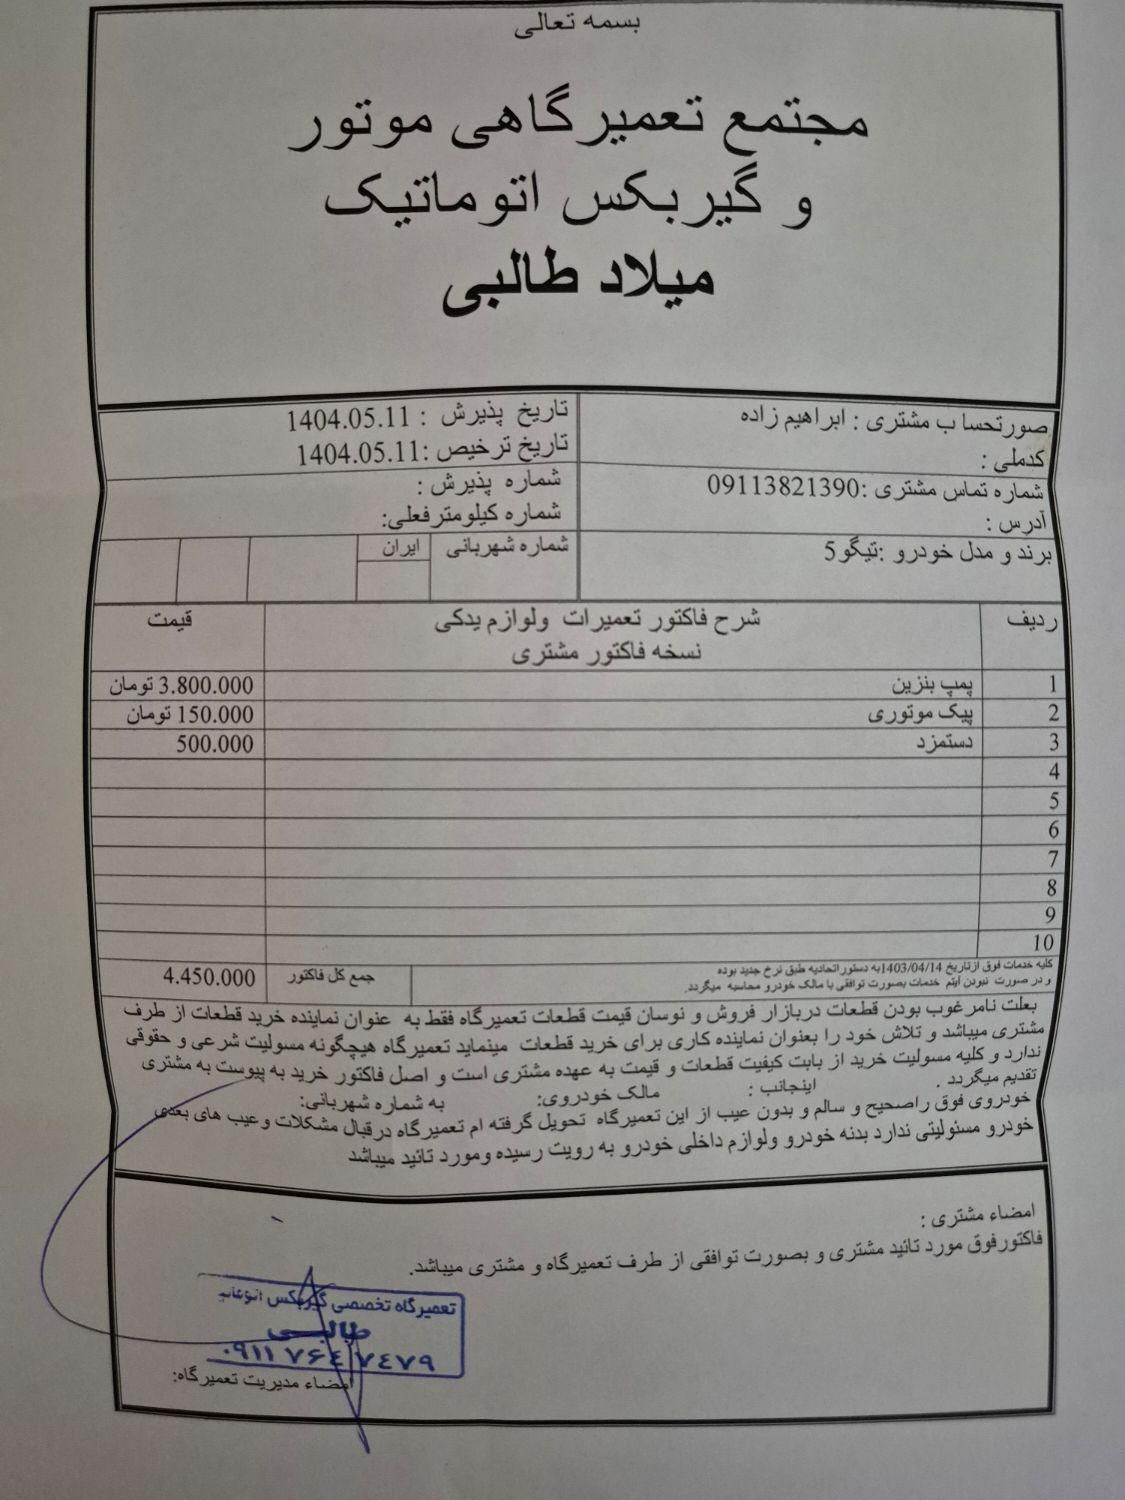 بسمه تعالی
مجتمع تعمیرگاهی موتور
و گیربکس اتوماتیک
میلاد طالبی
صورتحساب مشتری : ابراهیم زاده
کدملی :
تاریخ پذیرش : 1404.05.11
تاریخ ترخیص :1404.05.11
شماره تماس مشتری :09113821390
آدرس :
شماره پذیرش :
شماره کیلومترفعلی:
برند و مدل خودرو :تیگو5
شماره شهربانی
ایران
ردیف
شرح فاکتور تعمیرات ولوازم یدکی
نسخه فاکتور مشتری
قیمت
1 پمپ بنزین 3.800.000 تومان
2 پیک موتوری 150.000 تومان
3 دستمزد 500.000
4
5
6
7
8
9
10
کلیه خدمات فوق ازتاریخ 1403/04/14به دستوراتحادیه طبق نرخ جدید بوده
و در صورت نبودن آیتم خدمات بصورت توافقی با مالک خودرو محاسبه میگردد.
جمع کل فاکتور
4.450.000
بعلت نامرغوب بودن قطعات دربازار فروش و نوسان قیمت قطعات تعمیرگاه فقط به عنوان نماینده خرید قطعات از طرف
مشتری میباشد و تلاش خود را بعنوان نماینده کاری برای خرید قطعات مینماید تعمیرگاه هیچگونه مسولیت شرعی و حقوقی
ندارد و کلیه مسولیت خرید از بابت کیفیت قطعات و قیمت به عهده مشتری است و اصل فاکتور خرید به پیوست به مشتری
تقدیم میگردد . اینجانب : مالک خودروی: به شماره شهربانی:
خودروی فوق راصحیح و سالم و بدون عیب از این تعمیرگاه تحویل گرفته ام تعمیرگاه درقبال مشکلات وعیب های بعدی
خودرو مسئولیتی ندارد بدنه خودرو ولوازم داخلی خودرو به رویت رسیده ومورد تائید میباشد
امضاء مشتری :
فاکتورفوق مورد تائید مشتری و بصورت توافقی از طرف تعمیرگاه و مشتری میباشد.
تعمیرگاه تخصصی گیربکس اتوماتیک
طالبی
۰۹۱۱ ۷۶۴ ۷۴۷۹
امضاء مدیریت تعمیرگاه: